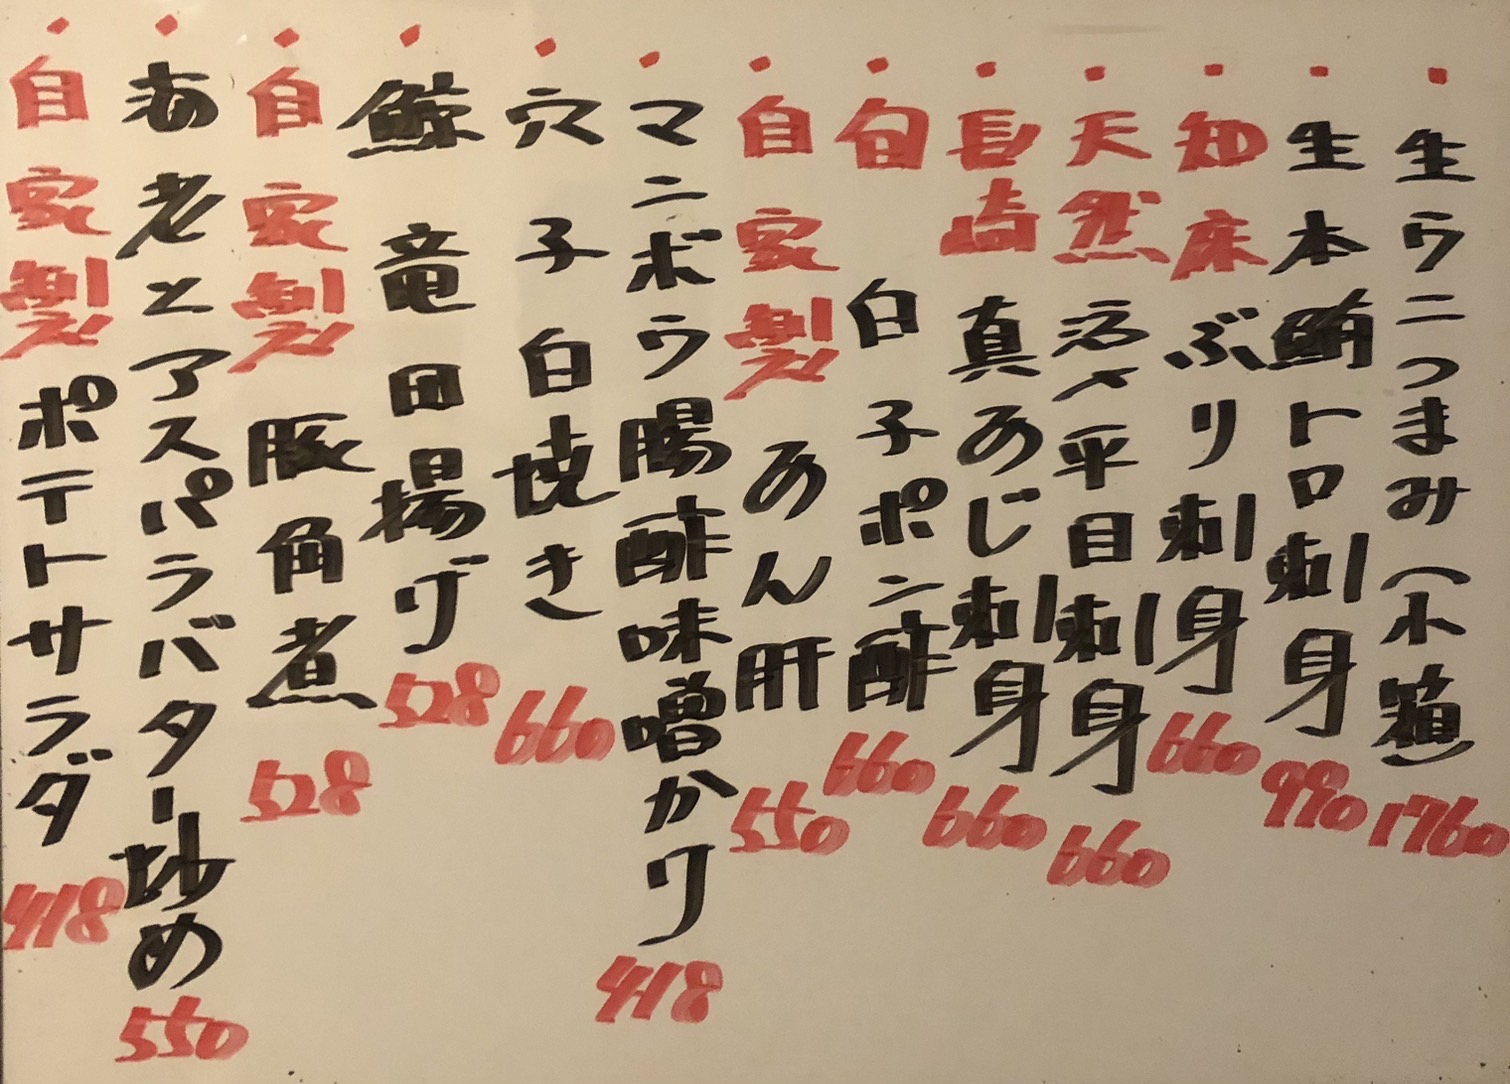 ・生ウニつまみ(小箱) 1760
・生本鮪トロ刺身 990
・知床ぶりり刺身 660
・天然活〆平目刺身 660
・長崎真あじ刺身 660
・旬白子ポン酢 660
・自家製あん肝 550
・マンボウ腸酢味噌かけ 418
・穴子白焼き 660
・鯨竜田揚げ 528
・自家製豚角煮 528
・海老とアスパラバター炒め 550
・自家製ポテトサラダ 418